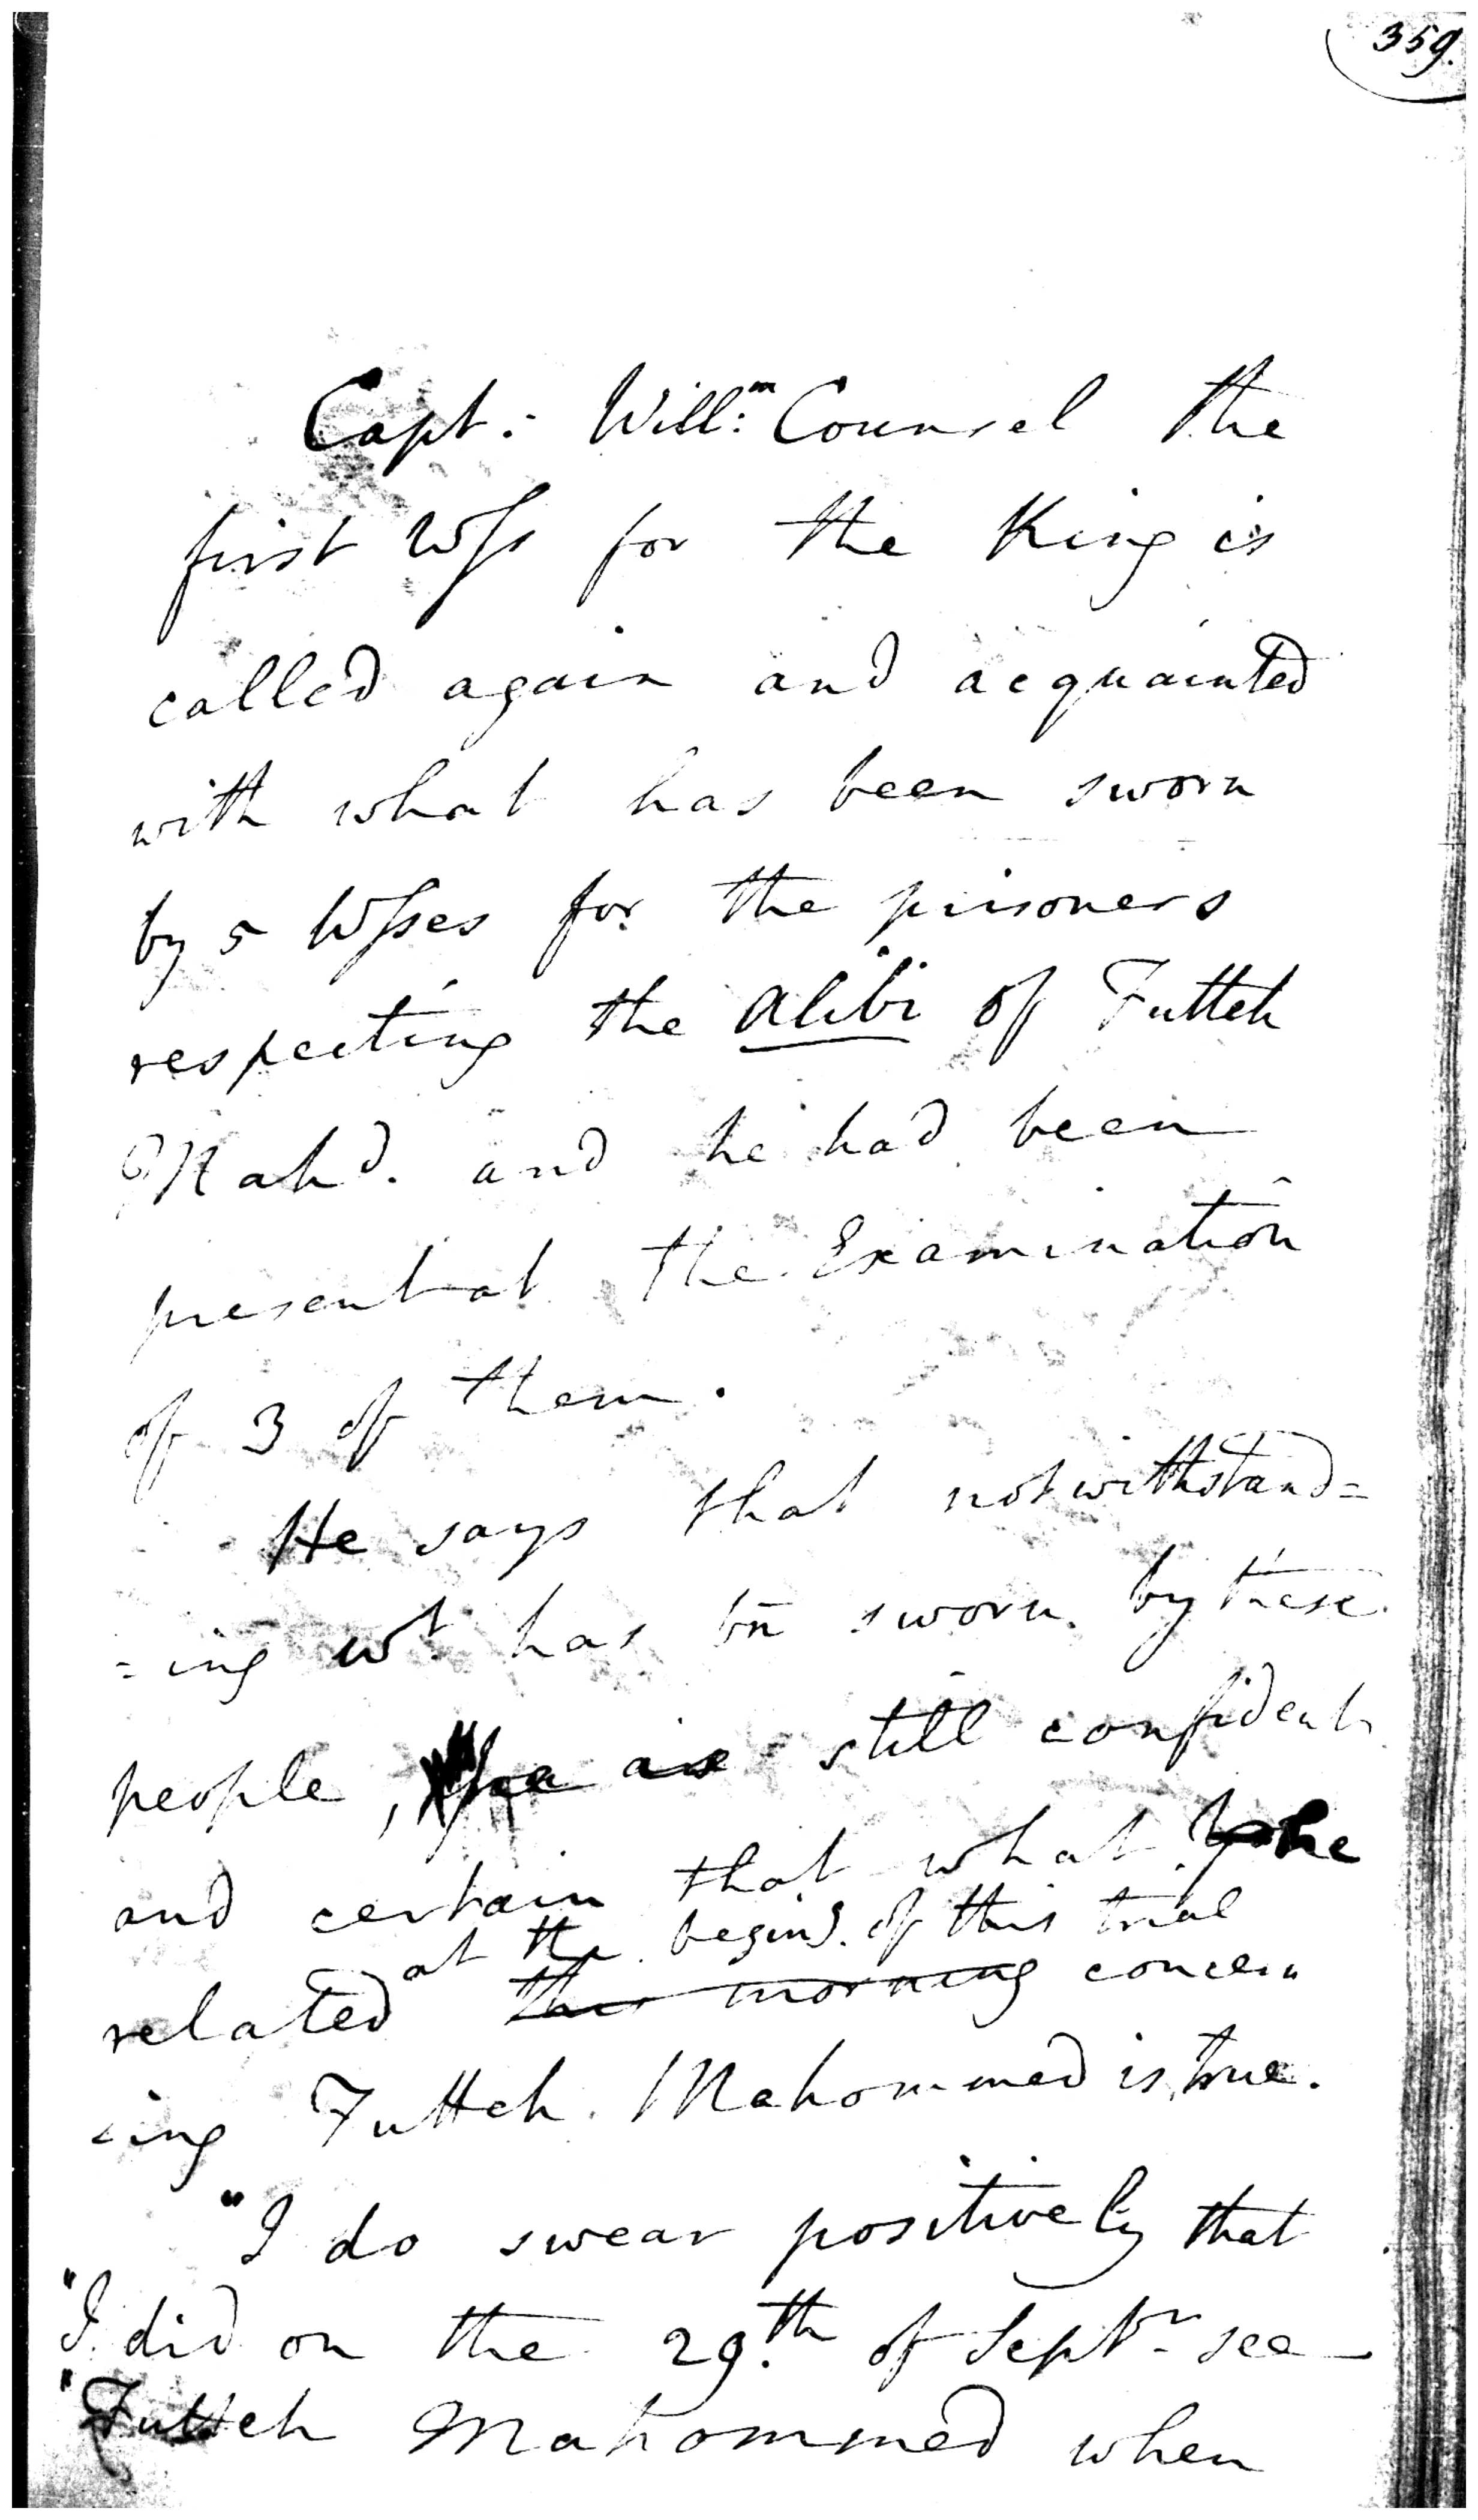 359.
Capt: Will:m Counsel the
first Wſs for the King is
called again and acquainted
with what has been sworn
by 5 Wſses for the prisoners
respecting the alibi of Futteh
Mahd. and he had been
present at the Examination
of 3 of them.
He says that notwithstand=
=ing wt. has bn sworn by these
people, he is still confident
and certain that what he
at the beging. of this trial
related this morning concern
=ing Futteh Mahommed is true.
"I do swear positively that
"I did on the 29.th of Septr see
"Futteh Mahommed when